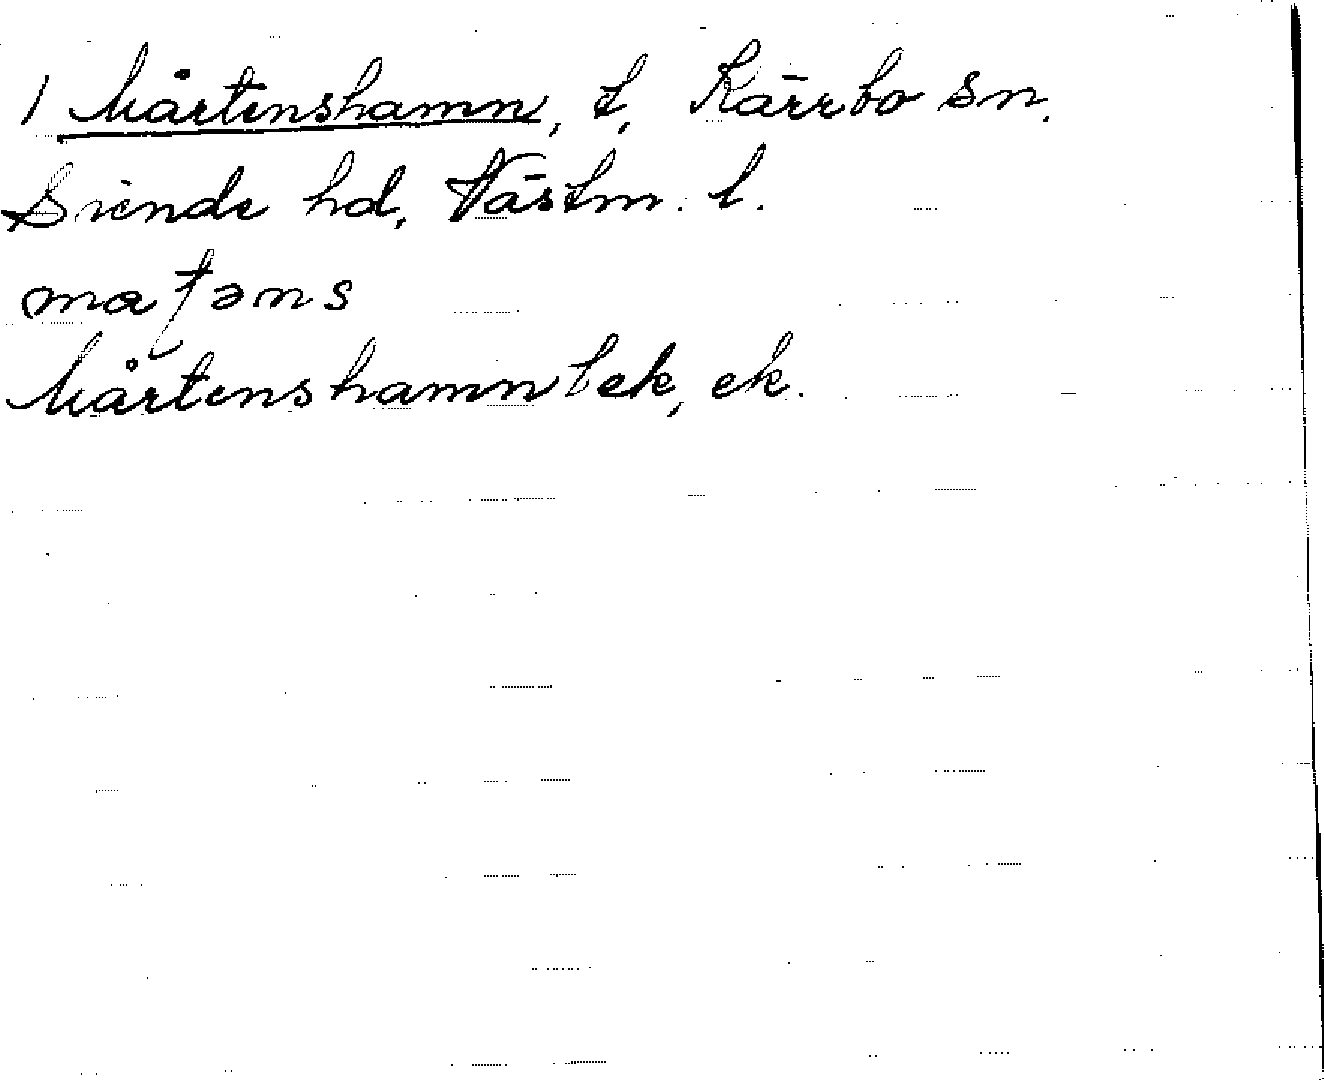 1 Mårtenshamn, t, Kärrbo sn.
Siende hd, Västm. l.
maʈəns
Mårtenshamn tek, ek.